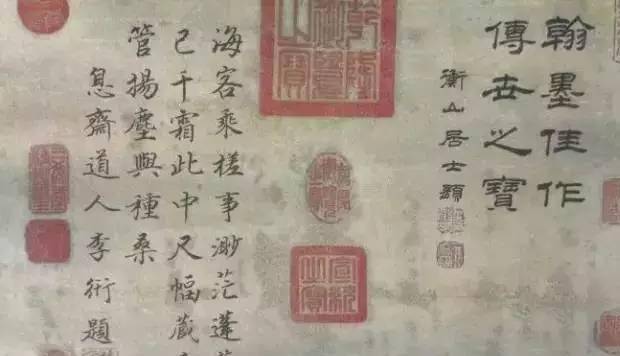 翰墨佳作
傳世之寶
衡山居士題
海客乘槎事渺茫蓬
已千霜此中尺幅藏
管揚塵與種桑
息齋道人李衎題